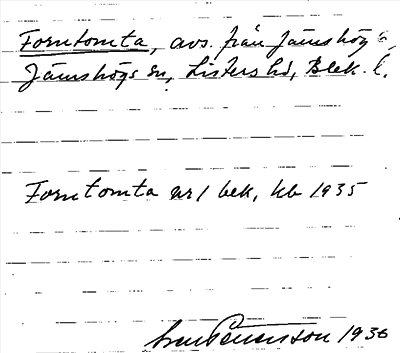 Forntomta, avs. från Jämshög 6,
Jämshögs sn, Listers hd, Blek. l.
Forntomta nr 1 bek, kb 1935
1936